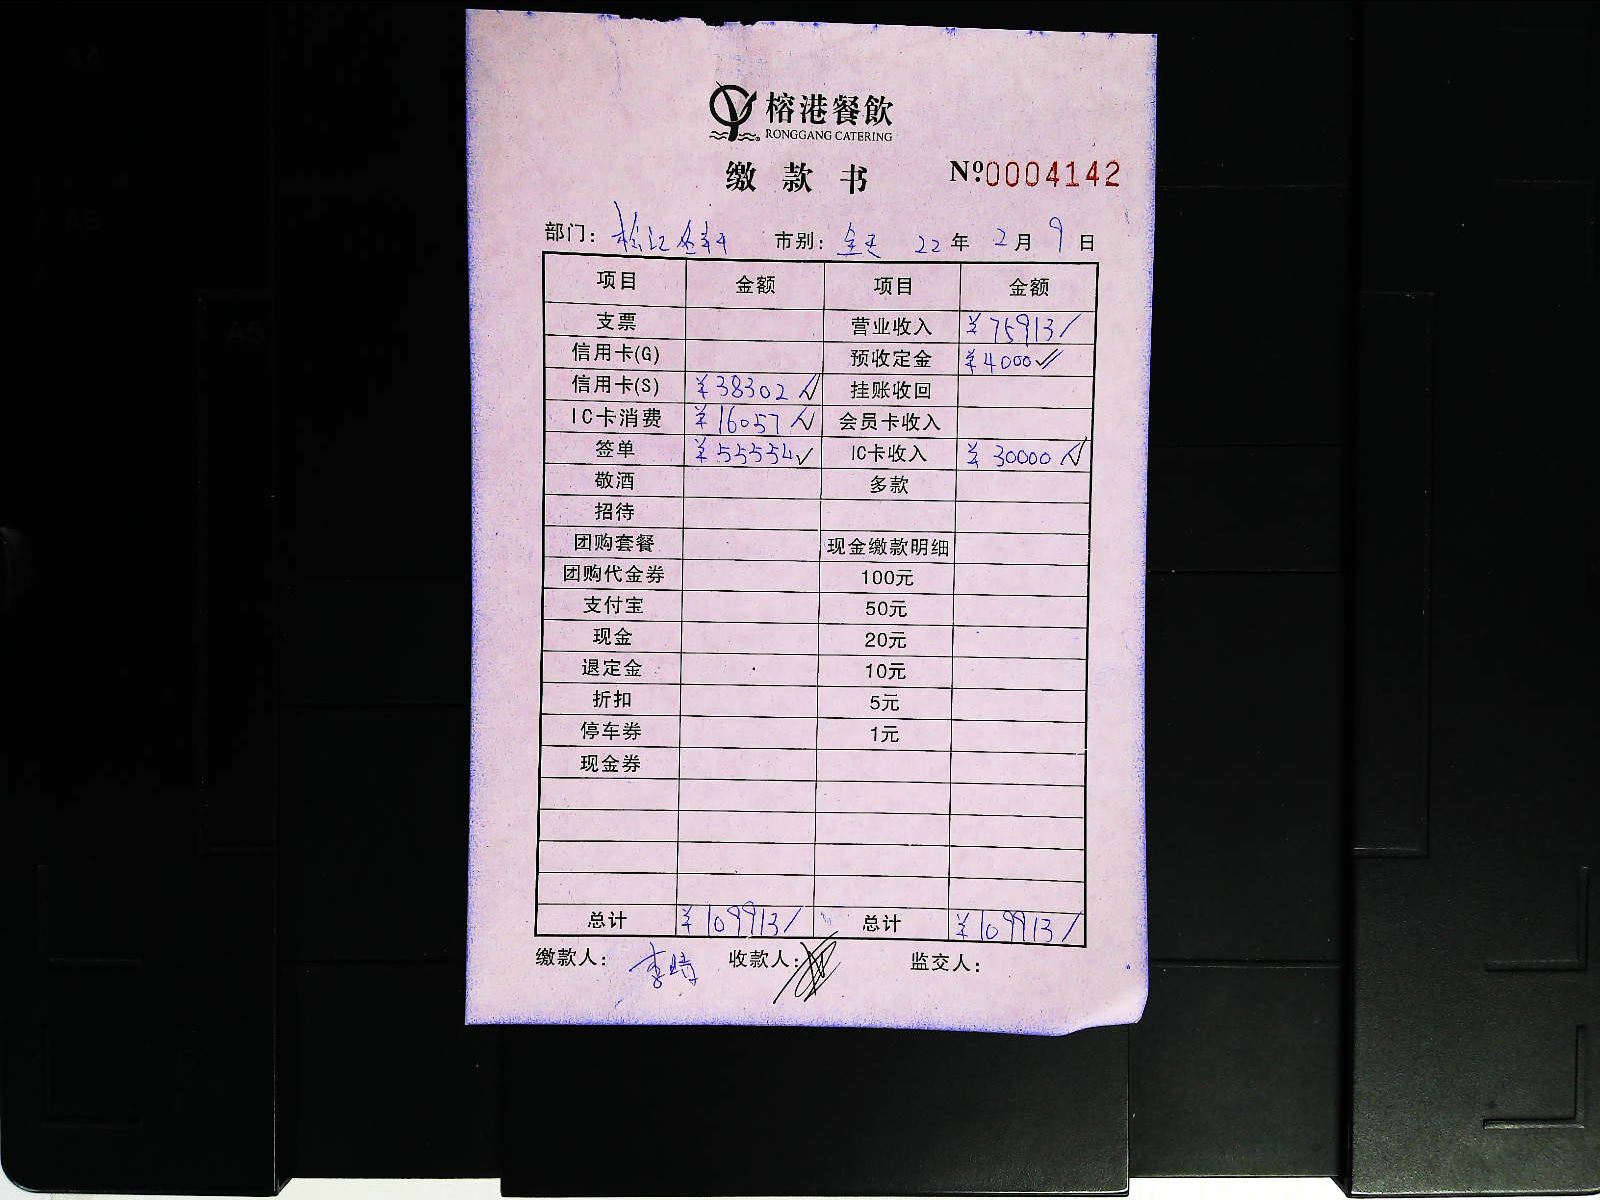 榕港餐飲
RONGGANG CATERING
缴款书 Nº0004142
部门： 市别：全天 22年2月9日
项目 金额 项目 金额
支票 营业收入 ¥75913/
信用卡(G) 预收定金 ¥4000
信用卡(S) ¥38302 挂账收回
IC卡消费 ¥16057 会员卡收入
签单 ¥55554 IC卡收入 ¥30000
敬酒 多款
招待
团购套餐 现金缴款明细
团购代金券 100元
支付宝 50元
现金 20元
退定金 10元
折扣 5元
停车券 1元
现金券
总计 ¥109913/ 总计 ¥109913/
缴款人： 收款人： 监交人：